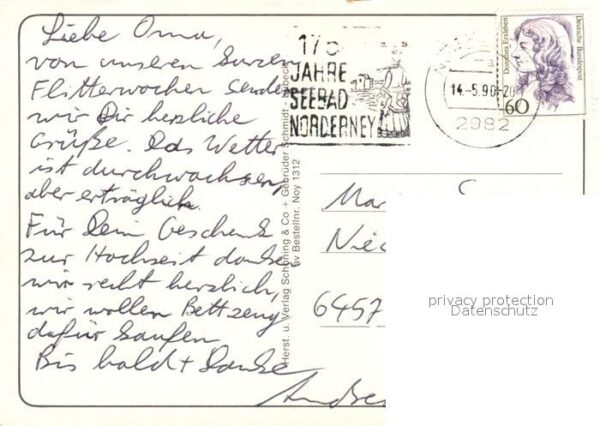 Liebe Oma,
von unseren kurzen
Flitterwochen senden
wir Dir herzliche
Grüße. Das Wetter
ist durchwachsen,
aber erträglich.
Für Dein Geschenk
zur Hochzeit danken
wir recht herzlich,
wir wollen Bettzeug
dafür kaufen
Bis bald + Danke
175
JAHRE
SEEBAD
NORDERNEY
14.-5.90.-20
2982
Dorothea Erxleben
Deutsche Bundespost
60
Herst. u. Verlag Schöning & Co + Gebrüder Schmidt - Lübeck
av Bestellnr. Noy 1312
Mar
Niec
6457
privacy protection
Datenschutz